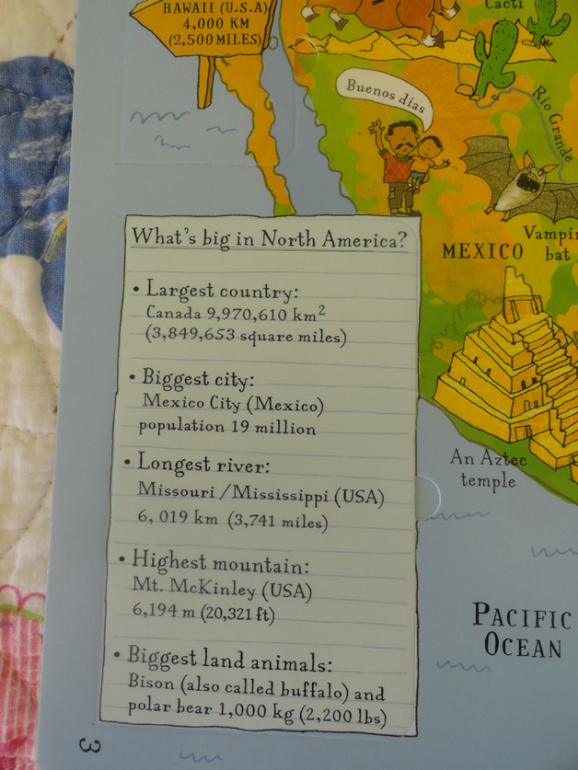 HAWAII (U.S.A)
4,000 KM
(2,500 MILES)
Cacti
Buenos días
Río Grande
MEXICO
Vampir
bat
What's big in North America?
• Largest country:
Canada 9,970,610 km²
(3,849,653 square miles)
• Biggest city:
Mexico City (Mexico)
population 19 million
• Longest river:
Missouri/Mississippi (USA)
6, 019 km (3,741 miles)
• Highest mountain:
Mt. McKinley (USA)
6,194 m (20,321 ft)
• Biggest land animals:
Bison (also called buffalo) and
polar bear 1,000 kg (2,200 lbs)
An Aztec
temple
PACIFIC
OCEAN
3